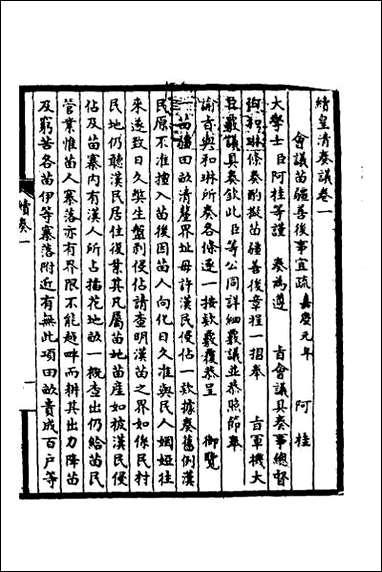 續皇清奏議卷一
會議苗疆善後事宜疏嘉慶元年 阿桂
大學士臣阿桂等謹 奏為遵 旨會議具奏事總督
和琳條奏酌擬苗疆善後章程一摺奉 旨軍機大
臣覈議具奏欽此臣等公同詳細覈議並恭照節奉
諭旨與和琳所奏各條逐一按欵覈覆恭呈 御覽
一苗疆田畝清釐界址毋許漢民侵佔一欵據奏舊例漢
民原不准擅入苗後因苗人向化日久准與民人姻婭往
來遂致日久獘生盤剥侵佔請查明漢苗之界如係民村
民地仍聽漢民居住復業其凡屬苗地苗産如被漢民侵
佔及苗寨内有漢人所占插花地畝一概查出仍給苗民
管業惟苗人寨落亦有界限不能越畔而耕其出力降苗
及窮苦各苗伊等寨落附近有無此項田畝責成百户等
續奏一
一